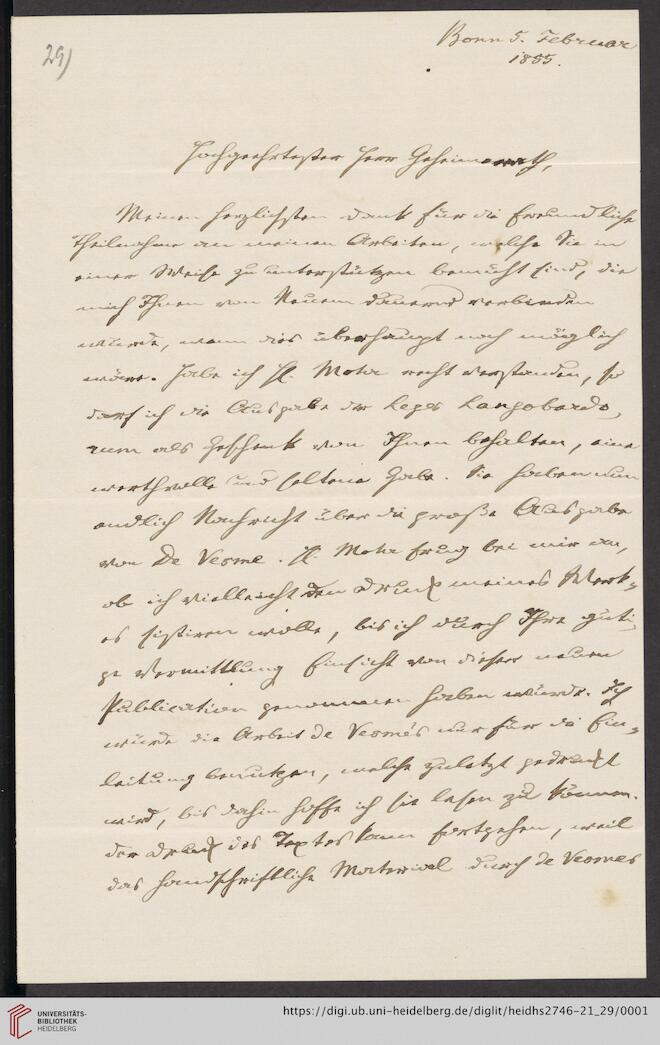 29)
Bonn 5. Februar
1855.
Hochgeehrtester Herr Geheimerath,
Meinen herzlichsten Dank für die freundliche
Theilnahme an meinen Arbeiten, welche Sie in
einer Weise zu unterstützen bemüht sind, die
mich Ihnen von Neuem dauernd verbinden
würde, wenn dies überhaupt noch möglich
wäre. Habe ich H. Mohr recht verstanden, so
darf ich die Ausgabe der Leges Langobardo-
rum als Geschenk von Ihnen behalten, eine
werthvolle und seltene Gabe. Sie haben nun
endlich Nachricht über die große Ausgabe
von De Vesme. H. Mohr frug bei mir an,
ob ich vielleicht den Druck meines Werk-
es sistiren wolle, bis ich durch Ihre güti-
ge Vermittlung Einsicht von dieser neuen
Publication genommen haben würde. Ich
würde die Arbeit de Vesme's nur für die Ein-
leitung benutzen, welche zuletzt gedruckt
wird, bis dahin hoffe ich sie lesen zu können.
Der Druck des Textes kann fortgehen, weil
das handschriftliche Material durch de Vesmes
UNIVERSITÄTS-
BIBLIOTHEK
HEIDELBERG
https://digi.ub.uni-heidelberg.de/diglit/heidhs2746-21_29/0001